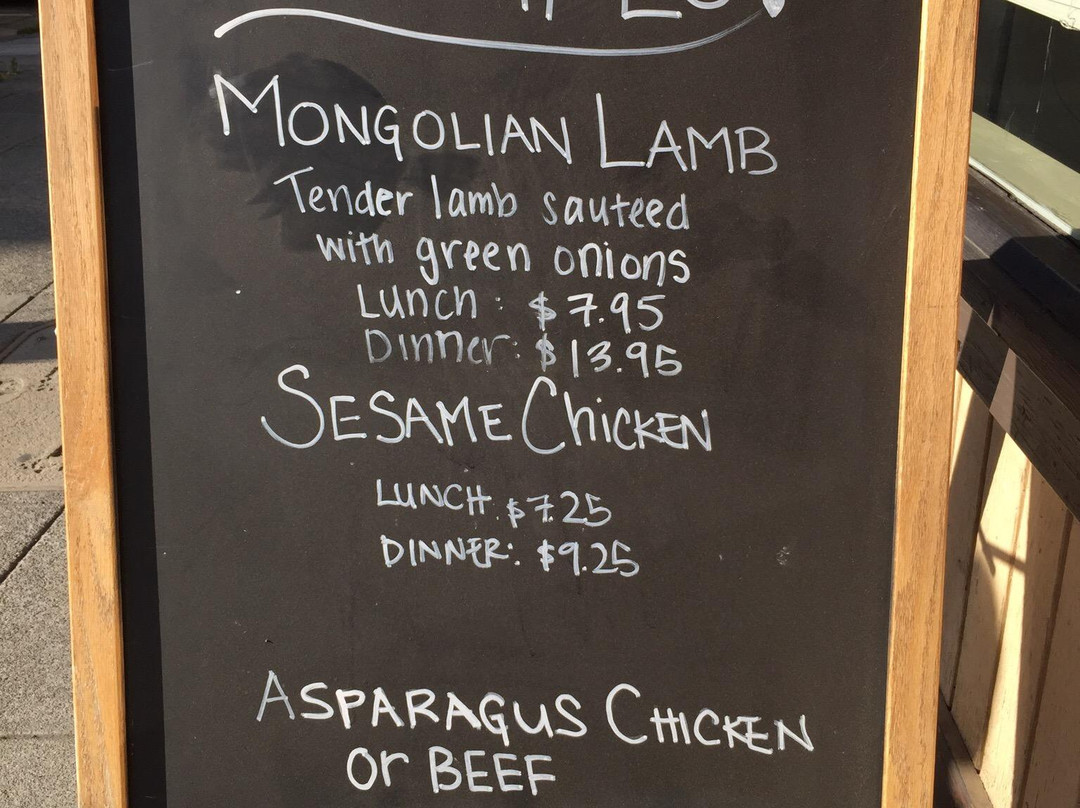 MONGOLIAN LAMB
Tender lamb sauteed
with green onions
Lunch: $7.95
Dinner: $13.95
SESAME ChicKEN
LUNCH: $7.25
DINNER: $9.25
ASPARAGUS CHICKEN
or BEEF